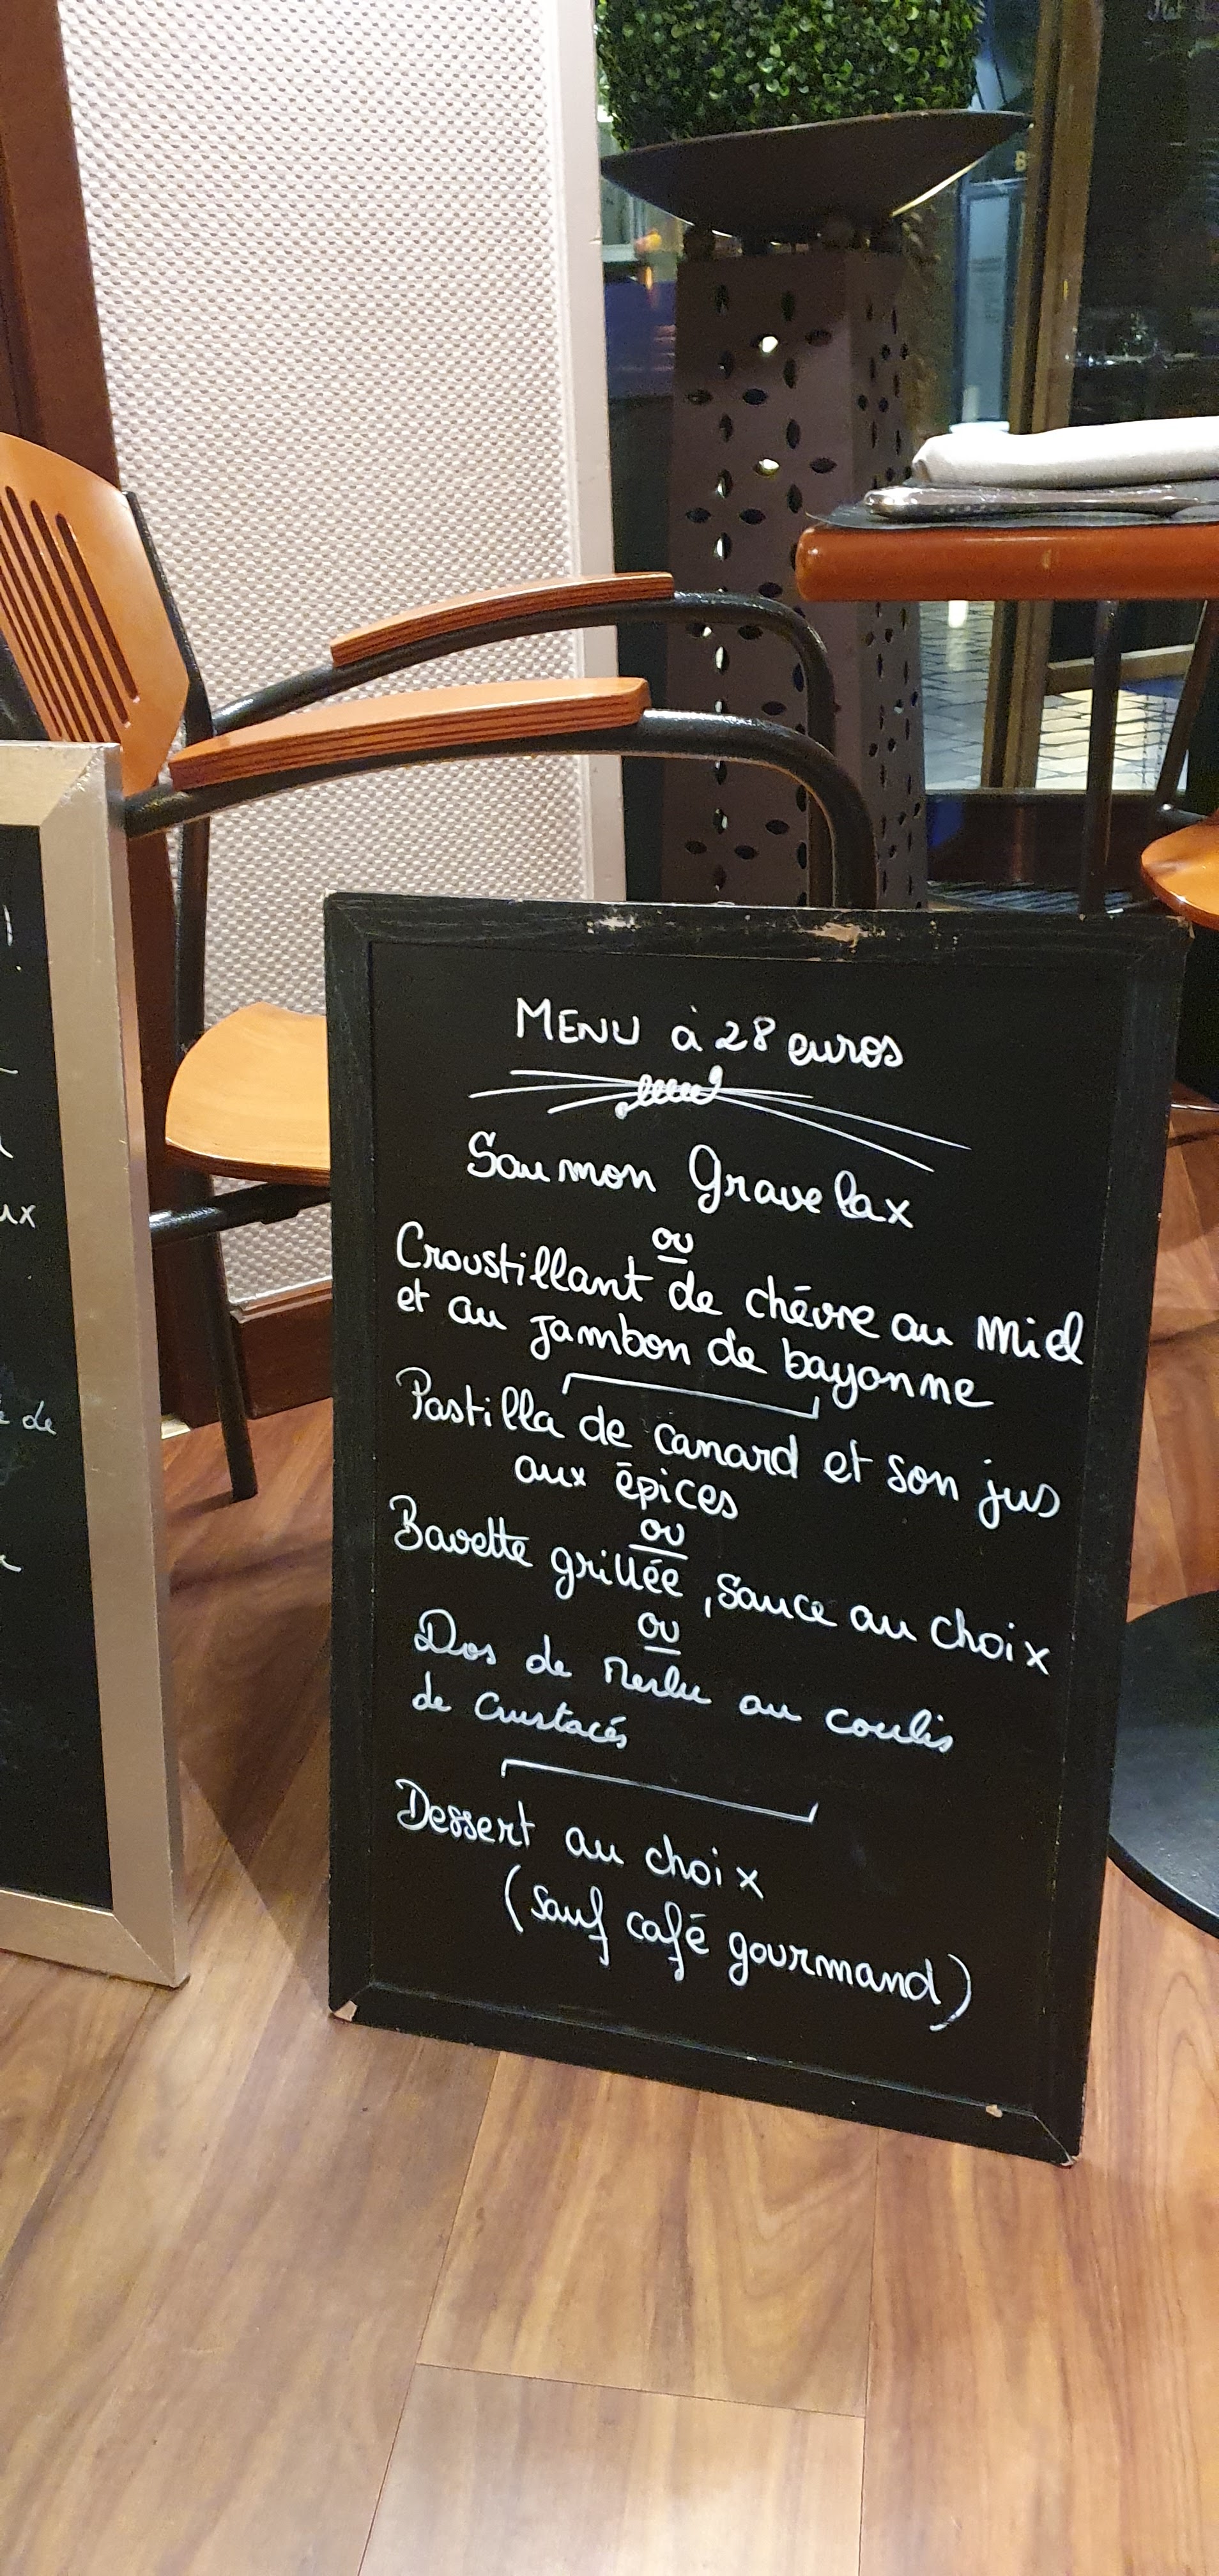 MENU à 28 euros
Saumon Gravelax
ou
Croustillant de chèvre au miel
et au jambon de bayonne
Pastilla de canard et son jus
aux épices
ou
Bavette grillée, sauce au choix
ou
Dos de Merlu au coulis
de crustacés
Dessert au choix
(sauf café gourmand)
ux
de